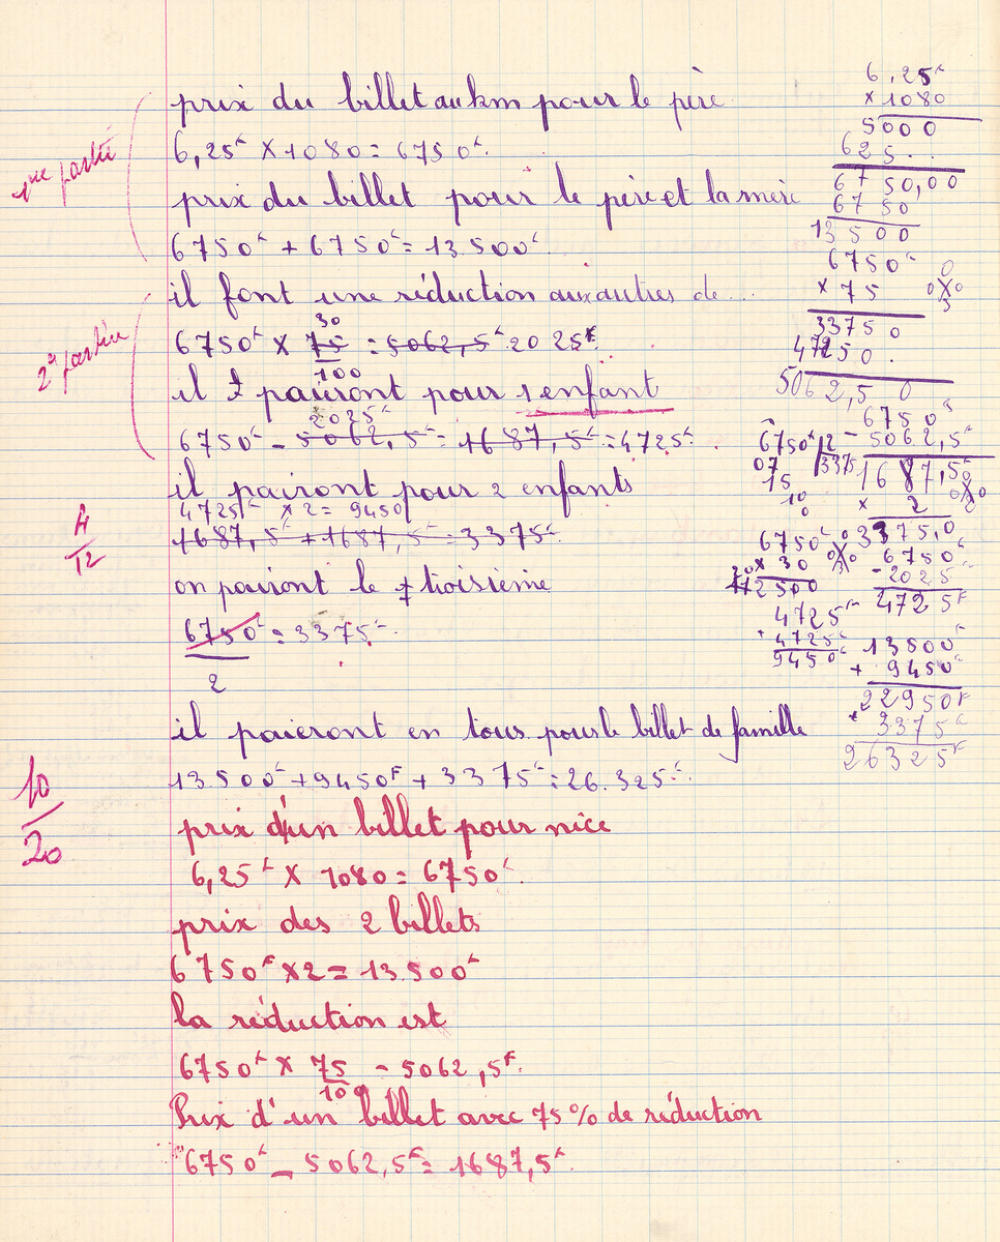 prix du billet au km pour le père
6,25F × 1080 = 6750F.
1ere partie
prix du billet pour le père et la mère
6750F + 6750F = 13.500F
il font une réduction aux autres de...
30
6750F × 75 = 5062,5F 20 25F.
100
2e partie
il paieront pour 1 enfant
2025F
6750F - 5062,5F = 1687,5F = 4725F.
il pairont pour 2 enfants
4725F × 2 = 9450F
1687,5F + 1687,5F = 3375F.
4
12
on pairont le troisième
6750F = 3375F.
2
il paieront en tous pour le billet de famille
13.500F + 9450F + 3375F = 26.325F.
10
20
prix d'un billet pour nice
6,25F × 1080 = 6750F.
prix des 2 billets
6750F × 2 = 13.500F
la réduction est
6750F × 75 = 5062,5F.
100
Prix d'un billet avec 75% de réduction
6750F - 5062,5F = 1687,5F.
6,25F
× 1080
5000
625..
6750,00
6750
13500
6750F
× 75
33750
47250.
5062,50
6750F
- 5062,5F
1687,5
× 2
3375,0
6750F 2
07 3375
15
10
0
6750F
× 30
2500
6750F
- 2025F
4725F
4725F
+ 4725F
9450F
13500F
+ 9450F
22950F
+ 3375F
26325F